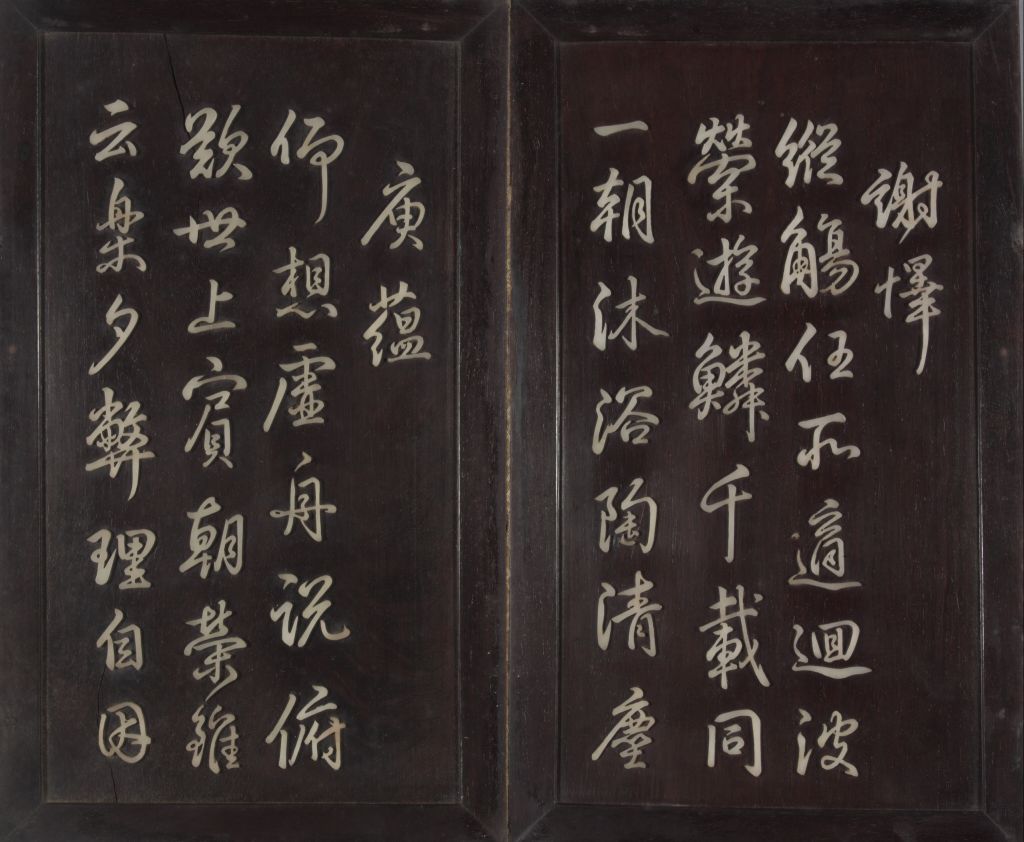 謝懌
縱觴任所適迴波
縈遊鱗千載同
一朝沐浴陶清塵
庾薀
仰想虛舟說俯
歎世上賓朝榮雖
云樂夕弊理自因